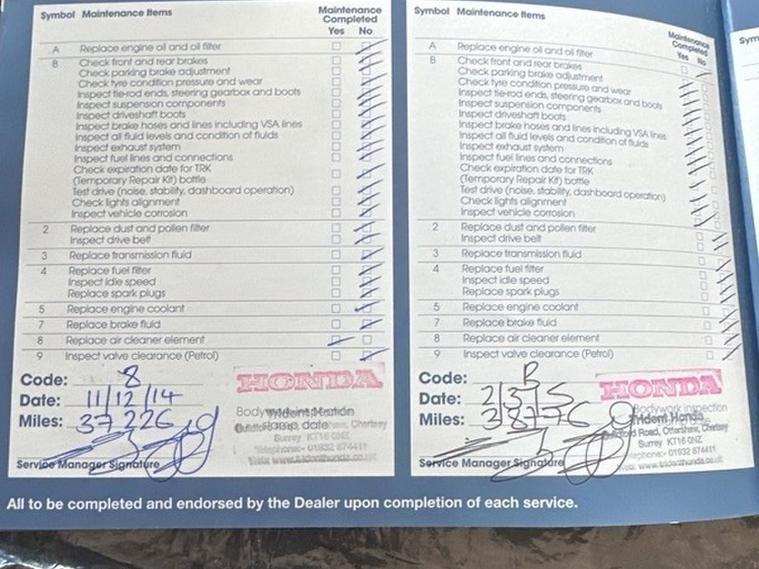 Symbol Maintenance Items Maintenance Completed
Yes No
A Replace engine oil and oil filter
B Check front and rear brakes
Check parking brake adjustment
Check tyre condition pressure and wear
Inspect tie-rod ends, steering gearbox and boots
Inspect suspension components
Inspect driveshaft boots
Inspect brake hoses and lines including VSA lines
Inspect all fluid levels and condition of fluids
Inspect exhaust system
Inspect fuel lines and connections
Check expiration date for TRK
(Temporary Repair Kit) bottle
Test drive (noise, stability, dashboard operation)
Check lights alignment
Inspect vehicle corrosion
2 Replace dust and pollen filter
Inspect drive belt
3 Replace transmission fluid
4 Replace fuel filter
Inspect idle speed
Replace spark plugs
5 Replace engine coolant
7 Replace brake fluid
8 Replace air cleaner element
9 Inspect valve clearance (Petrol)
Code: 8
Date: 11/12/14
Miles: 37226
Service Manager Signature
HONDA
Bodywork inspection
Trident Honda
date
Surrey KT16 0NZ
Telephone:- 01932 874411
www.tridenthonda.co.uk
Symbol Maintenance Items
Maintenance Completed
Yes No
A Replace engine oil and oil filter
B Check front and rear brakes
Check parking brake adjustment
Check tyre condition pressure and wear
Inspect tie-rod ends, steering gearbox and boots
Inspect suspension components
Inspect driveshaft boots
Inspect brake hoses and lines including VSA lines
Inspect all fluid levels and condition of fluids
Inspect exhaust system
Inspect fuel lines and connections
Check expiration date for TRK
(Temporary Repair Kit) bottle
Test drive (noise, stability, dashboard operation)
Check lights alignment
Inspect vehicle corrosion
2 Replace dust and pollen filter
Inspect drive belt
3 Replace transmission fluid
4 Replace fuel filter
Inspect idle speed
Replace spark plugs
5 Replace engine coolant
7 Replace brake fluid
8 Replace air cleaner element
9 Inspect valve clearance (Petrol)
Code: B
Date: 2/3/15
Miles: 38776
Service Manager Signature
HONDA
Bodywork inspection
Trident Honda
Guildford Road, Ottershaw, Chertsey
Surrey KT16 0NZ
Telephone:- 01932 874411
www.tridenthonda.co.uk
Sym
All to be completed and endorsed by the Dealer upon completion of each service.